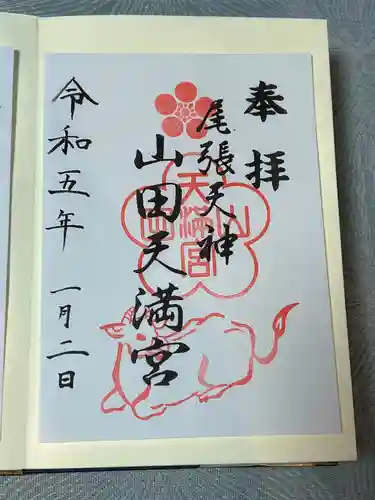 奉拝
尾張天神
山田天満宮
令和五年 一月二日
山田天満宮